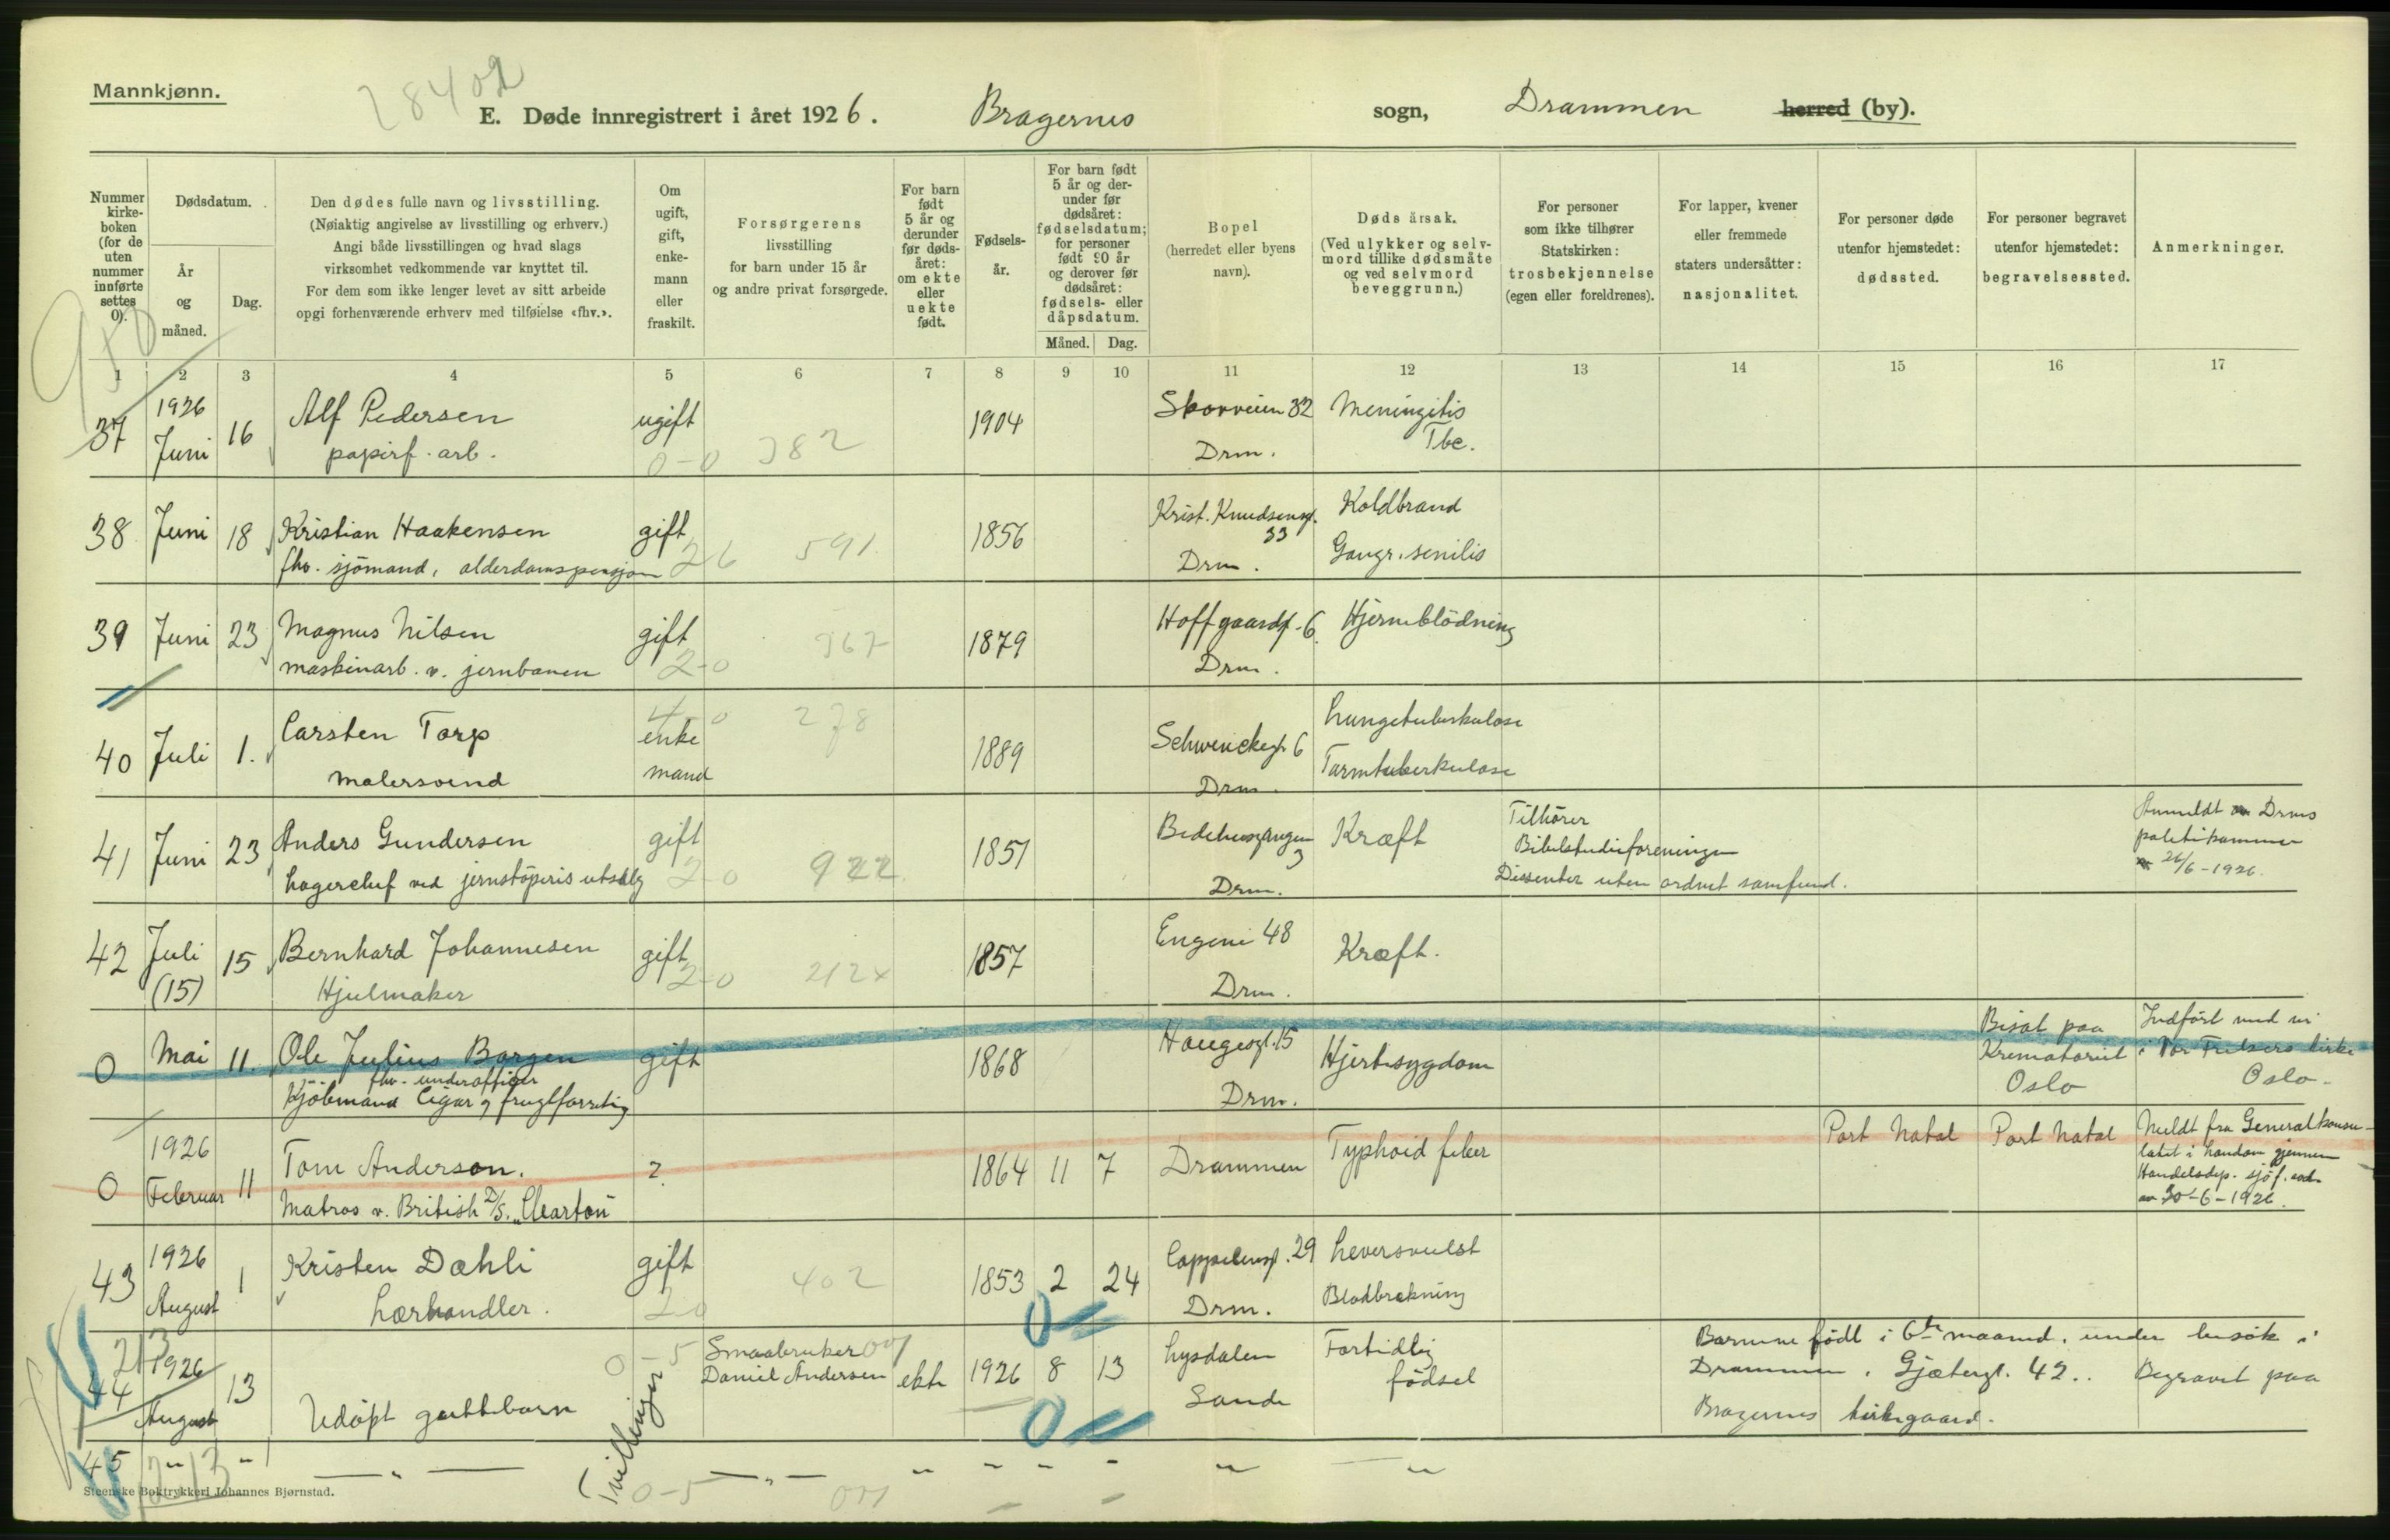 Mannkjønn.
28402
E. Døde innregistrert i året 1926. Bragernes sogn, Drammen herred (by).
Nummer kirke-boken (for de uten nummer innførte settes 0).
Dødsdatum.
År og måned.
Dag.
Den dødes fulle navn og livsstilling.
(Nøiaktig angivelse av livsstilling og erhverv.)
Angi både livsstillingen og hvad slags
virksomhet vedkommende var knyttet til.
For dem som ikke lenger levet av sitt arbeide
opgi forhenværende erhverv med tilføielse «fhv.».
Om ugift, gift, enke-mann eller fraskilt.
Forsørgerens
livsstilling
for barn under 15 år
og andre privat forsørgede.
For barn født 5 år og derunder før døds-året: om ekte eller uekte født.
Fødsels-år.
For barn født 5 år og der-under før dødsåret: fødselsdatum; for personer født 90 år og derover før dødsåret: fødsels- eller dåpsdatum.
Måned. Dag.
Bopel
(herredet eller byens navn).
Døds årsak.
(Ved ulykker og selv-mord tillike dødsmåte og ved selvmord beveggrunn.)
For personer som ikke tilhører Statskirken: trosbekjennelse (egen eller foreldrenes).
For lapper, kvener eller fremmede staters undersåtter: nasjonalitet.
For personer døde utenfor hjemstedet: dødssted.
For personer begravet utenfor hjemstedet: begravelsessted.
Anmerkninger.
1 2 3 4 5 6 7 8 9 10 11 12 13 14 15 16 17
37 1926 Juni 16 Alf Pedersen ugift 1904 Skovveien 32 Meningitis
papirf. arb. 0-0 382 Drm. Tbc.
38 Juni 18 Kristian Haakensen gift 1856 Krist. Knudsensg. 33 Koldbrand
fhv. sjömand, alderdomspensjon 26 591 Drm. Gangr. senilis
39 Juni 23 Magnus Nilsen gift 1879 Hoffgaardsg. 6 Hjerneblödning
maskinarb. v. jernbanen 2-0 Drm.
4-0 278
40 Juli 1. Carsten Torp enke 1889 Schwenckegt. 6 Lungetuberkulose
malersvend mand Drm. Tarmtuberkulose
41 Juni 23 Anders Gundersen gift 1851 Bedehusgangen 3 Kræft Tilhörer Anmeldt Drms
lagerchef ved jernstöperis utsalg 2-0 922 Drm. Bibelstudieforeningen politikammer
Dissenter uten ordnet samfund. 26/6-1926.
42 Juli (15) 15 Bernhard Johannesen gift 1857 Engene 48 Kræft.
Hjulmaker 2-0 212x Drm.
0 Mai 11. Ole Julius Borgen gift 1868 Haugesgt. 15 Hjertesygdom Bisat paa Indfört med nr
fhv. underofficer Krematoriet i Vor Frelsers kirke
Kjöbmand Cigar og frugtforretng Drm. Oslo Oslo.
0 1926 Februar 11 Tom Anderson. ? 1864 11 7 Drammen Typhoid feber Port Natal Port Natal Meldt fra Generalkonsu-
latet i London gjennem
Matros v. British S/S. "Clearton" Handelsdep. sjöf. avd.
av 30-6-1926.
43 1926 August 1 Kristen Dæhli gift 1853 2 24 Cappelensg. 29 Leversvulst
Lærhandler. 2-0 402 Drm. Blodbrækning
213
44 1926 August 13 Udöpt guttebarn 0-5 Smaabruker Daniel Andersen ekte 1926 8 13 Lysdalen Sande Fortidlig födsel Barnene födt i 6te maaned, under besök i
Drammen, Gjætergt. 42.. Begravet paa
Bragernes kirkegaard.
Tvillinger
45 " " — " — 0-5 — " — " " " " " "
213
Steenske Boktrykkeri Johannes Bjørnstad.